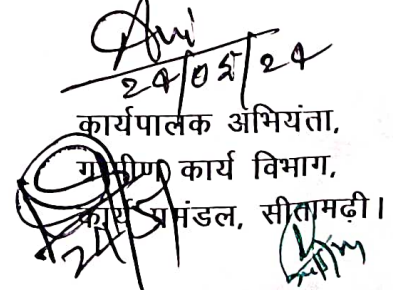 24/05/24
कार्यपालक अभियंता,
ग्रामीण कार्य विभाग,
कार्य प्रमंडल, सीतामढ़ी।